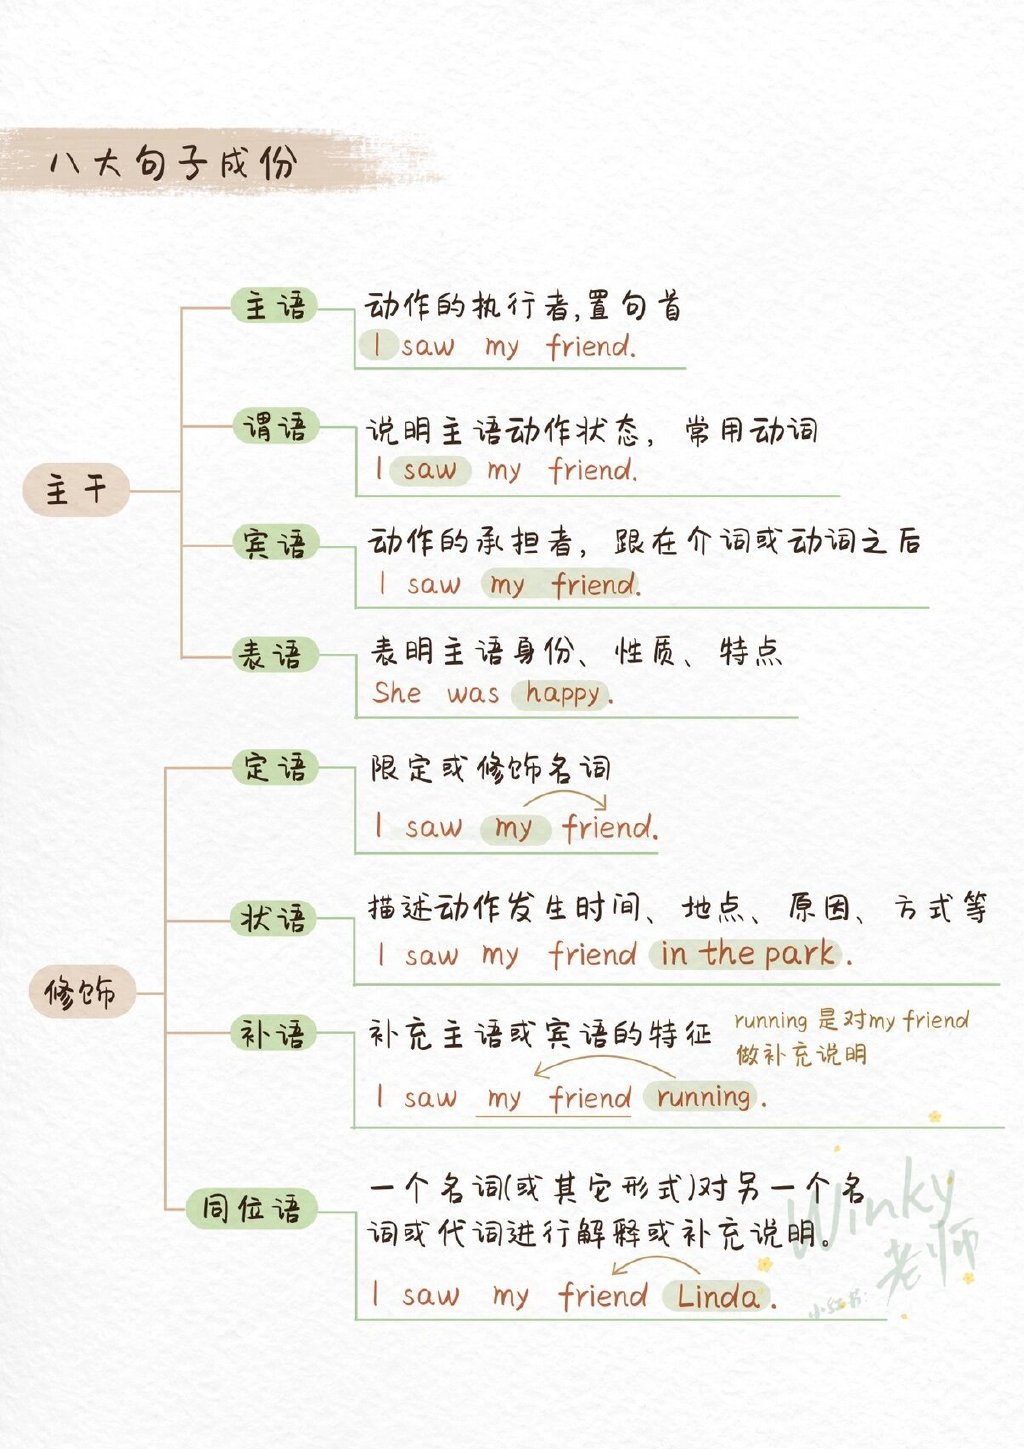 八大句子成份
主干
主语
动作的执行者,置句首
I saw my friend.
谓语
说明主语动作状态，常用动词
I saw my friend.
宾语
动作的承担者，跟在介词或动词之后
I saw my friend.
表语
表明主语身份、性质、特点
She was happy.
修饰
定语
限定或修饰名词
I saw my friend.
状语
描述动作发生时间、地点、原因、方式等
I saw my friend in the park.
补语
补充主语或宾语的特征
running 是对my friend
做补充说明
I saw my friend running.
同位语
一个名词(或其它形式)对另一个名
词或代词进行解释或补充说明。
I saw my friend Linda.
Winky
老师
小红书: